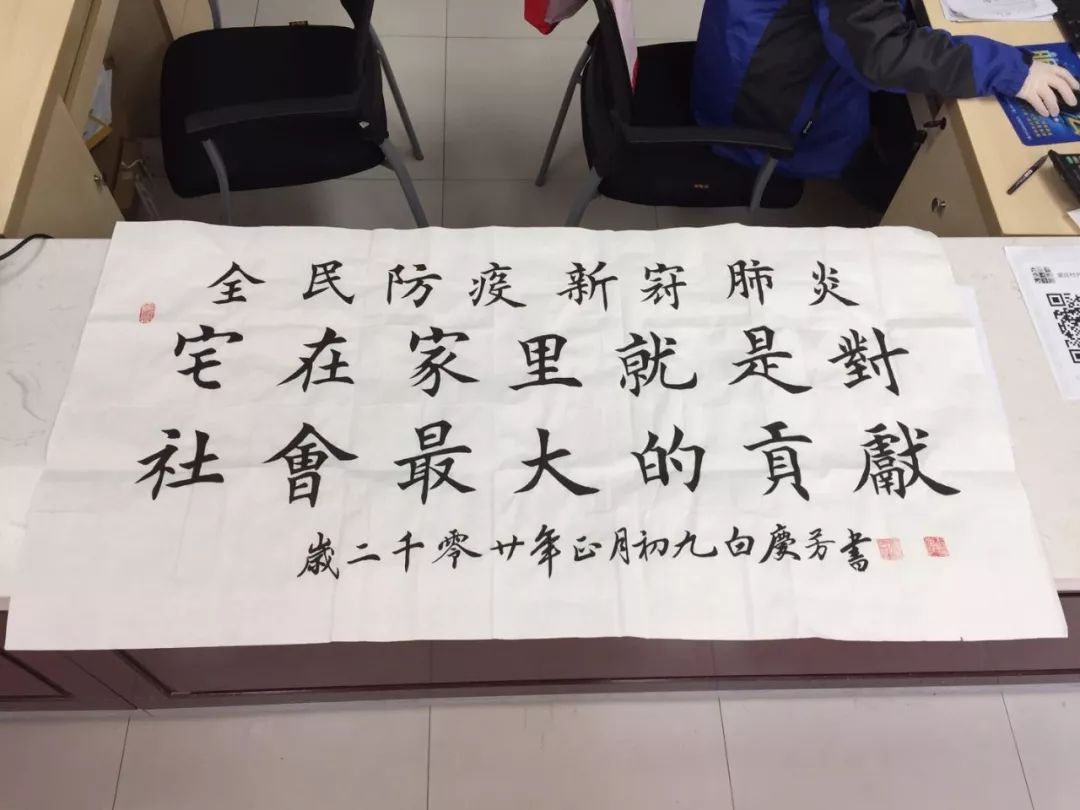 全民防疫新冠肺炎
宅在家里就是對
社會最大的貢獻
歲二千零廿年正月初九白慶芳書